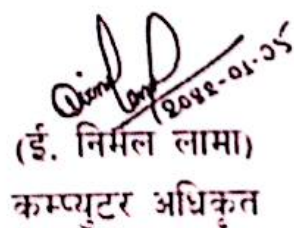 २०८२-०१-२५
(ई. निर्मल लामा)
कम्प्युटर अधिकृत